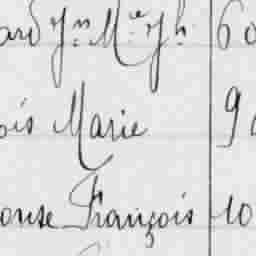 ard Jn M.ie Jh 60
ois Marie 90
onse François 10